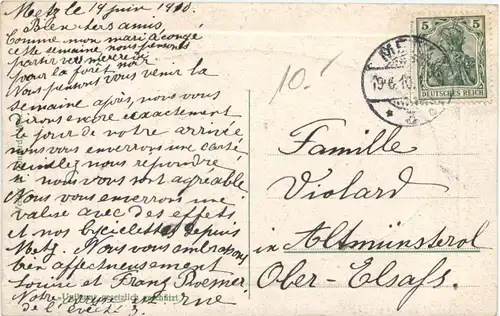 Metz le 19 juin 1910.
Bien chers amis,
Comme mon mari a congé
cette semaine nous pensons
partir vers mercredi
pour la forêt
Nous pensons vous venir la
semaine après, nous vous
dirons encore exactement
le jour de notre arrivée
nous vous enverrons une carte
veuillez nous répondre
si nous vous sont agréable
Nous vous enverrons une
valise avec des effets
et nos bicyclettes depuis
Metz. Nous vous embrassons
bien affectueusement
Louise et Franz Roemer
Notre adresse est rue
de l'évêché 3.
gesetzlich geschützt
10.-
5 5
DEUTSCHES REICH
METZ
19.6.10
Familie
Violard
in Altmünsterol
Ober-Elsaß.